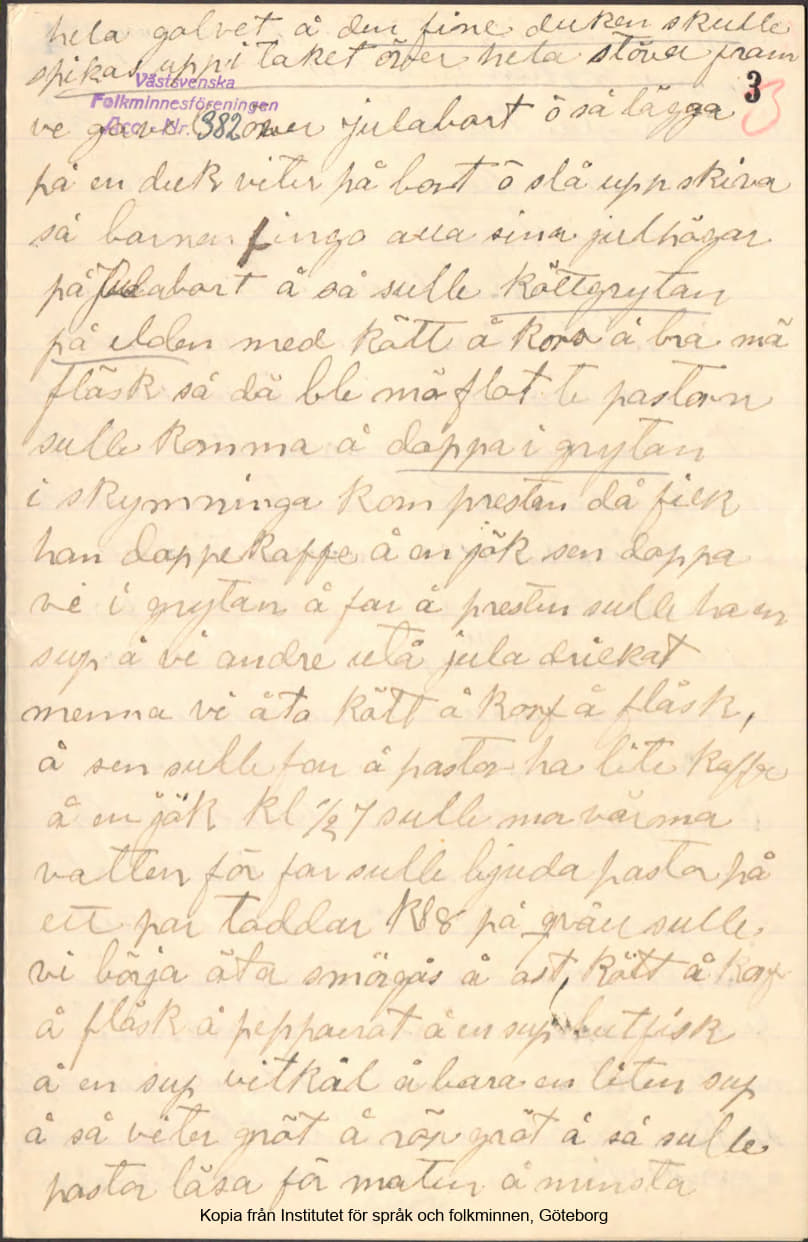 hela golvet å den fine duken skulle
spikas upp i taket över hela stöva fram
3
3
Västsvenska
Folkminnesföreningen
Acc. Nr. 382
ve över julabort ö så lägga
på en duk viter på bort ö slå upp skiva
så barnen fingo alla sina julhögar
på Julabort å så sulle köttgrytan
på elden med kött å korv å bra mä
fläsk så dä ble mö flot te pastorn
sulle komma å doppa i grytan
i skymninga kom presten då fick
han doppekaffe å en jök sen doppa
vi i grytan å far å presten sulle ha en
sup å vi andre utå jula drickat
menna vi åto kött å korf å fläsk,
å sen sulle far å pastor ha lite kaffe
å en jök kl ½ 7 sulle mor värma
vatten för far sulle bjuda pastor på
ett par toddar kl 8 på sulle
vi börja äta smörgås å ost, kött å korf
å fläsk å pepparrot å en sup lutfisk
å en sup vitkål å bara en liten sup
å så viter gröt å rösgröt å så sulle
pastor läsa för maten å minsta
Kopia från Institutet för språk och folkminnen, Göteborg